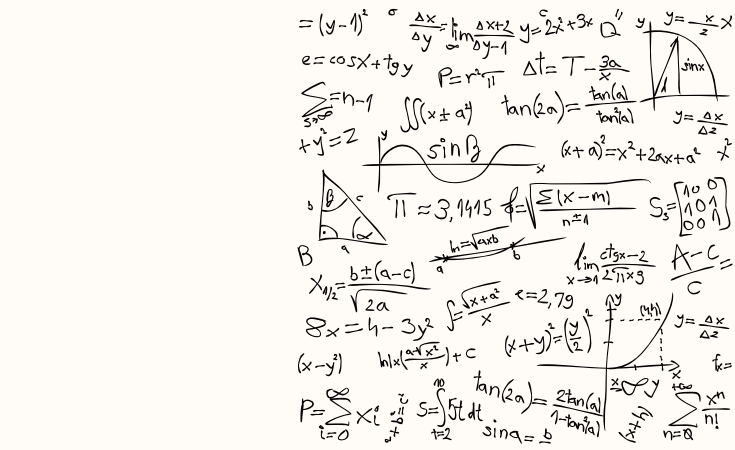 = (y-1)²
Δx/Δy = lim Δx+2/Δy-1
y = 2x² + 3x
y = x/2 x
e = cosx + tgy
P = r²π
Δt = T - 3a/x
sinx
Σ = n-1
∬(x ± a²)
tan(2a) = tan(a)/tan²(a)
y = Δx/Δ2
+y² = 2
y
sin β
x
(x+a)² = x² + 2ax + a²
x²
b β c
a α
π ≈ 3,1415
f = √Σ(x-m)/n±1
S₃ = [1 0 0
1 0 1
0 0 1]
B
ln = √axb
a b
lim x→1 ctgx-2/2πxg
A-C/C =
X1/2 = b±(a-c)/√2a
∫ = √x+a²/x
e = 2,79
y
8x = 4 - 3y²
(x+y)² = (y/2)²
y = Δx/Δ2
(x-y²)
ln|x(a-√x²/x) + c
x
fx =
P = Σ i=0 ∞ xi
S = ∫ t=2 10 5t dt
tan(2a) = 2tan(a)/1-tan²(a)
x = ∞ y
(x+h)
Σ n=0 +∞ xⁿ/n!
sin a = b